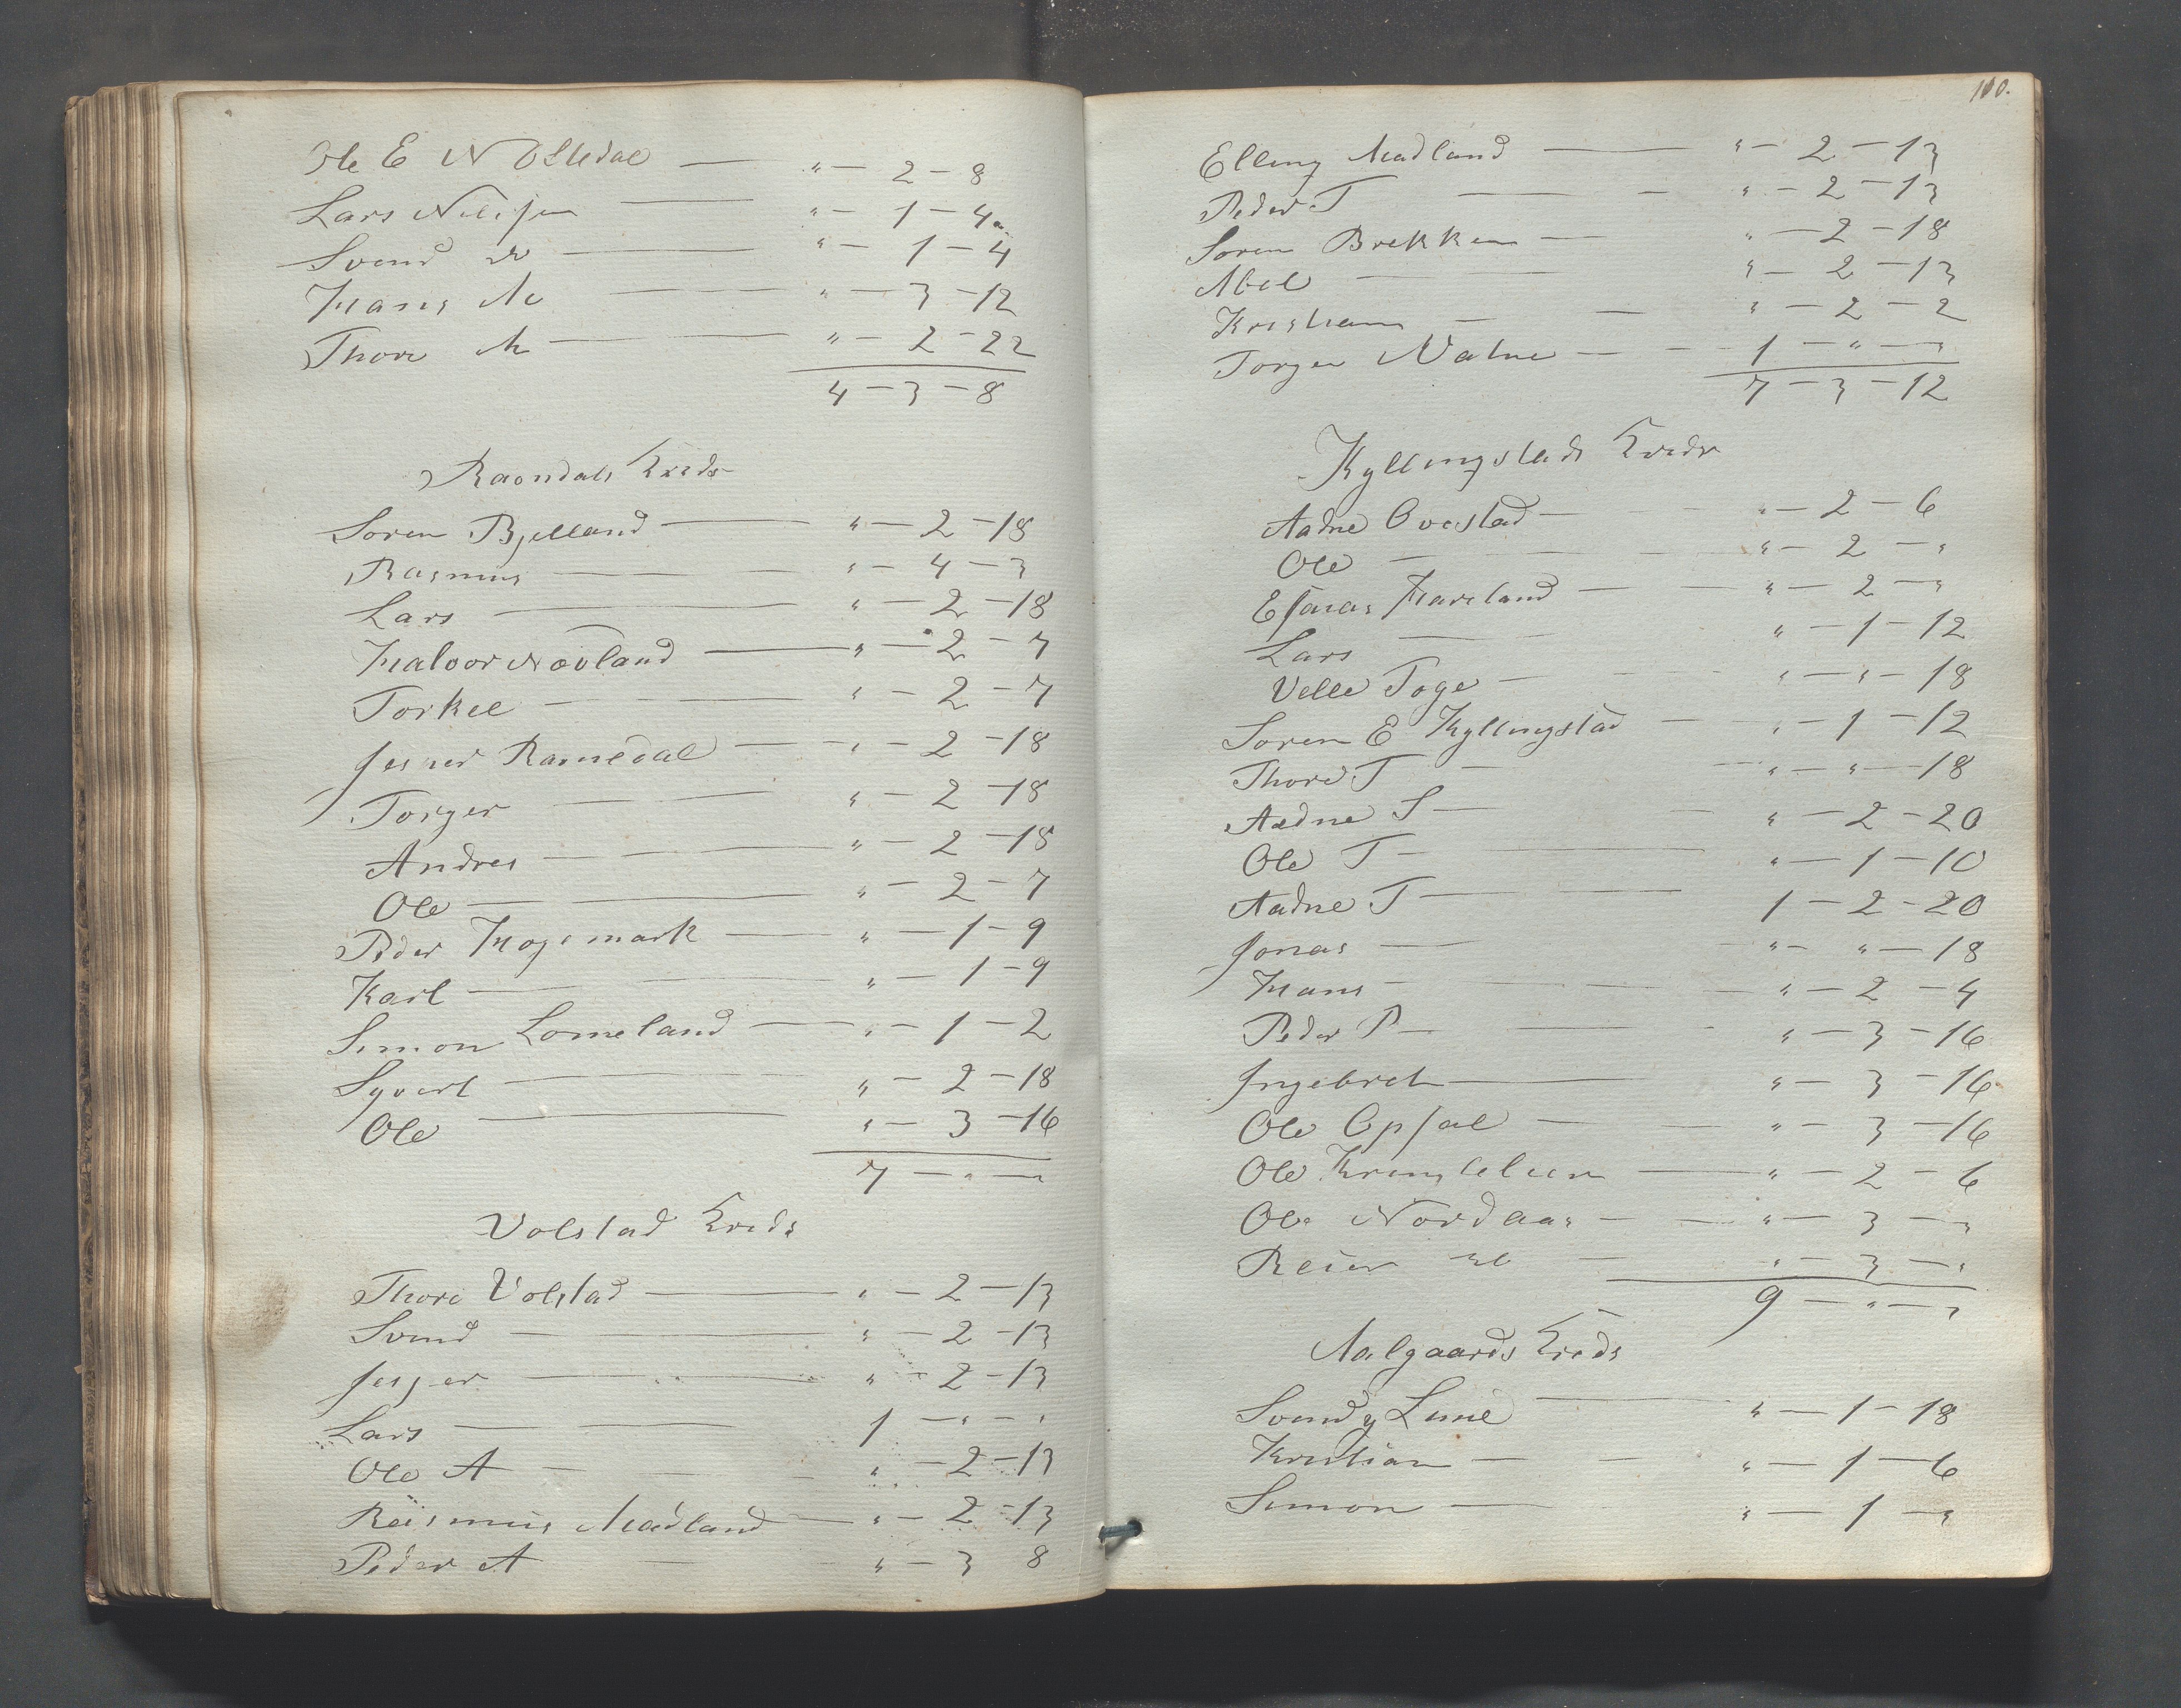 Ole E N Oltedal — " — 2 — 8
Lars Nilssen — " — 1 — 4
Svend do — " — 1 — 4
Hans — " — 3 — 12
Thore — " — 2 — 22
4 — 3 — 8
Ravndals Kreds
Soren Bjelland — " — 2 — 18
Rasmus — " — 4 — 3
Lars — " — 2 — 18
Halvor Nævland — " — 2 — 7
Torkel — " — 2 — 7
Jesper Ravnedal — " — 2 — 18
Torger — " — 2 — 18
Andres — " — 2 — 18
Ole — " — 2 — 7
Peder Hogemark — " — 1 — 9
Karl — " — 1 — 9
Simon Lomeland — " — 1 — 2
Syvert — " — 2 — 18
Ole — " — 3 — 16
7 — " — "
Volstad Kreds
Thore Volstad — " — 2 — 13
Svend — " — 2 — 13
Jesper — " — 2 — 13
Lars — 1 — " — "
Ole A — " — 2 — 13
Rasmus Madland — " — 2 — 13
Peder A — " — 3 8
110.
Elling Madland — " — 2 — 13
Peder T — " — 2 — 13
Soren Brekken — " — 2 — 18
Abel — " — 2 — 13
Kristian — " — 2 — 2
Torger Natue — 1 — " — "
7 — 3 — 12
Kyllingstads Kreds
Aadne Ovestad — " — 2 — 6
Ole — " — 2 — "
Esaias Haveland — " — 2 — "
Lars — " — 1 — 12
Velle Toge — " — " — 18
Soren E Kyllingstad — " — 1 — 12
Thore T — " — " — 18
Aadne S — " — 2 — 20
Ole T — " — 1 — 10
Aadne T — 1 — 2 — 20
Jonas — " — " — 18
Hans — " — 2 — 4
Peder P — " — 3 — 16
Ingebret — " — 3 — 16
Ole Opsal — " — 3 — 16
Ole Kringeleen — " — 2 — 6
Ole Nordaas — " — 3 — "
Reier do — " — 3 — "
9 — " — "
Aalgaards Kreds
Svend Lime — " — 1 — 18
Kristian — " — 1 — 6
Simon — " — 1 — "